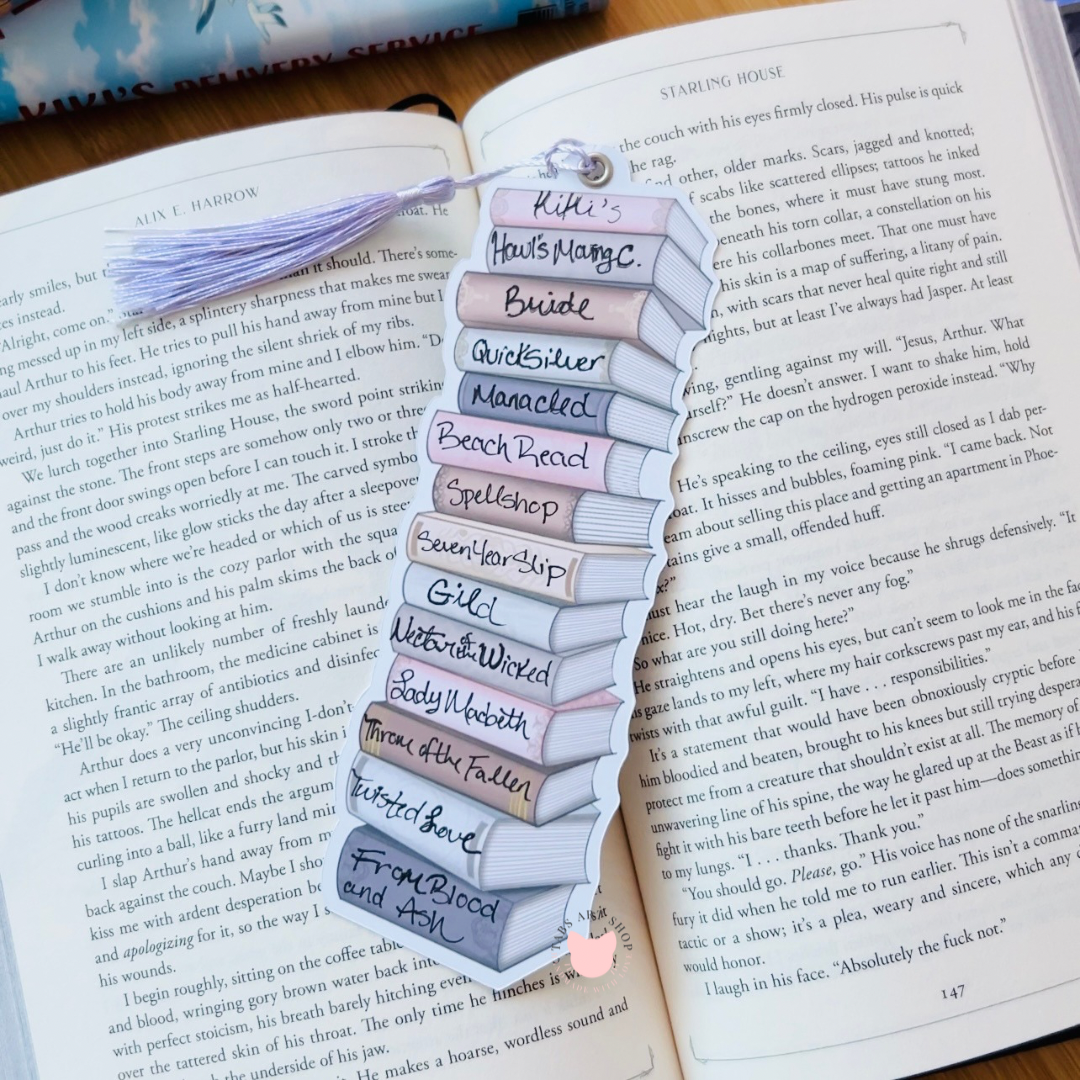 KIKI'S DELIVERY SERVICE
ALIX E. HARROW
early smiles, but
instead.
"Alright, come on."
it should. There's some-
left side, a splintery sharpness that makes me swear
messed up in my
to his feet. He tries to pull his hand away from mine but I
over my shoulders instead, ignoring the silent shriek of my ribs.
Arthur tries to hold his body away from mine and I elbow him. "D
weird, just do it." His protest strikes me as half-hearted.
We lurch together into Starling House, the sword point striking
against the stone. The front steps are somehow only two or three
and the front door swings open before I can touch it. I stroke
pass and the wood creaks worriedly at me. The carved symbo
slightly luminescent, like glow sticks the day after a sleepover
I don't know where we're headed or which of us is stee
room we stumble into is the cozy parlor with the squa
Arthur on the cushions and his palm skims the back of
I walk away without looking at him.
There are an unlikely number of freshly laund
kitchen. In the bathroom, the medicine cabinet is
a slightly frantic array of antibiotics and disinfec
"He'll be okay." The ceiling shudders.
Arthur does a very unconvincing I-don't
act when I return to the parlor, but his skin i
his pupils are swollen and shocky and th
his tattoos. The hellcat ends the argum
curling into a ball, like a furry land mi
I slap Arthur's hand away from mine
back against the couch. Maybe I sho
kiss me with ardent desperation
and apologizing for it, so the way I
his wounds.
I begin roughly, sitting on the coffee table
and blood, wringing gory brown water back int
with perfect stoicism, his breath barely hitching even
over the tattered skin of his throat. The only time he flinches is
the underside of his jaw.
He makes a hoarse, wordless sound and
Kiki's
Howl's Moving C.
Bride
Quicksilver
Manacled
Beach Read
Spellshop
Seven Year Slip
Gild
Nectar of the Wicked
Lady Macbeth
Throne of the Fallen
Twisted Love
From Blood
and Ash
STARLING HOUSE
the couch with his eyes firmly closed. His pulse is quick
the rag.
other, older marks. Scars, jagged and knotted;
scabs like scattered ellipses; tattoos he inked
the bones, where it must have stung most.
beneath his torn collar, a constellation on his
where his collarbones meet. That one must have
his skin is a map of suffering, a litany of pain.
with scars that never heal quite right and still
nights, but at least I've always had Jasper. At least
gentling against my will. "Jesus, Arthur. What
He doesn't answer. I want to shake him, hold
unscrew the cap on the hydrogen peroxide instead. "Why
He's speaking to the ceiling, eyes still closed as I dab per-
oat. It hisses and bubbles, foaming pink. "I came back. Not
eam about selling this place and getting an apartment in Phoe-
tains give a small, offended huff.
must hear the laugh in my voice because he shrugs defensively. "It
nice. Hot, dry. Bet there's never any fog."
So what are you still doing here?"
He straightens and opens his eyes, but can't seem to look me in the fa
is gaze lands to my left, where my hair corkscrews past my ear, and his f
twists with that awful guilt. "I have . . . responsibilities."
It's a statement that would have been obnoxiously cryptic before
him bloodied and beaten, brought to his knees but still trying despera
protect me from a creature that shouldn't exist at all. The memory of
unwavering line of his spine, the way he glared up at the Beast as if
fight it with his bare teeth before he let it past him—does something
to my lungs. "I . . . thanks. Thank you."
"You should go. Please, go." His voice has none of the snarling
fury it did when he told me to run earlier. This isn't a comma
tactic or a show; it's a plea, weary and sincere, which any
would honor.
I laugh in his face. "Absolutely the fuck not."
147